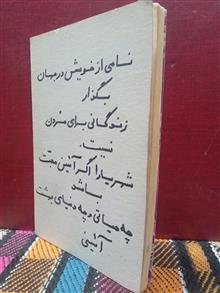 نامی از خویش در جهان
بگذار
زندگانی برای مردن
نیست.
شهریارا اگر آئین محبت
باشد
چه حیاتی و چه دنیای بهشت
آئینی